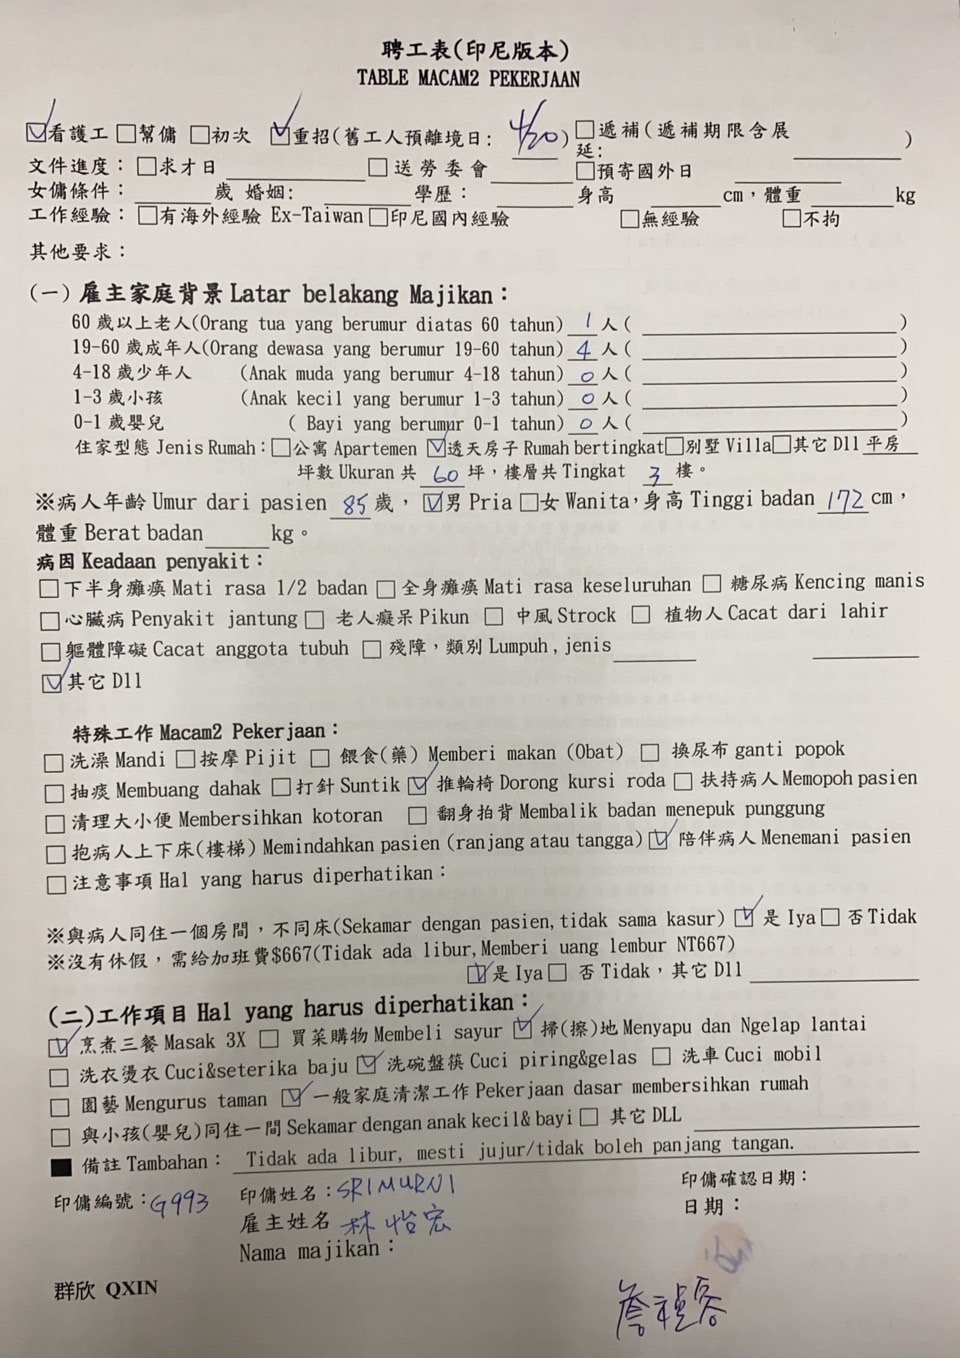 聘工表(印尼版本)
TABLE MACAM2 PEKERJAAN
☑看護工 ☐幫傭 ☐初次 ☑重招(舊工人預離境日: 4/20) ☐遞補(遞補期限含展延: )
文件進度：☐求才日 ☐送勞委會 ☐預寄國外日
女傭條件： 歲 婚姻: 學歷： 身高 cm，體重 kg
工作經驗：☐有海外經驗 Ex-Taiwan ☐印尼國內經驗 ☐無經驗 ☐不拘
其他要求：
(一) 雇主家庭背景 Latar belakang Majikan：
60 歲以上老人(Orang tua yang berumur diatas 60 tahun) 1 人( )
19-60 歲成年人(Orang dewasa yang berumur 19-60 tahun) 4 人( )
4-18 歲少年人 (Anak muda yang berumur 4-18 tahun) 0 人( )
1-3 歲小孩 (Anak kecil yang berumur 1-3 tahun) 0 人( )
0-1 歲嬰兒 ( Bayi yang berumur 0-1 tahun) 0 人( )
住家型態 Jenis Rumah：☐公寓 Apartemen ☑透天房子 Rumah bertingkat ☐別墅 Villa ☐其它 Dll 平房
坪數 Ukuran 共 60 坪，樓層共 Tingkat 3 樓。
※病人年齡 Umur dari pasien 85 歲，☑男 Pria ☐女 Wanita，身高 Tinggi badan 172 cm，
體重 Berat badan kg。
病因 Keadaan penyakit：
☐下半身癱瘓 Mati rasa 1/2 badan ☐全身癱瘓 Mati rasa keseluruhan ☐ 糖尿病 Kencing manis
☐心臟病 Penyakit jantung ☐ 老人癡呆 Pikun ☐ 中風 Strock ☐ 植物人 Cacat dari lahir
☐軀體障礙 Cacat anggota tubuh ☐ 殘障，類別 Lumpuh, jenis
☑其它 Dll
特殊工作 Macam2 Pekerjaan：
☐洗澡 Mandi ☐按摩 Pijit ☐ 餵食(藥) Memberi makan (Obat) ☐ 換尿布 ganti popok
☐抽痰 Membuang dahak ☐打針 Suntik ☑推輪椅 Dorong kursi roda ☐ 扶持病人 Memopoh pasien
☐清理大小便 Membersihkan kotoran ☐ 翻身拍背 Membalik badan menepuk punggung
☐抱病人上下床(樓梯) Memindahkan pasien (ranjang atau tangga) ☑陪伴病人 Menemani pasien
☐注意事項 Hal yang harus diperhatikan：
※與病人同住一個房間，不同床(Sekamar dengan pasien, tidak sama kasur) ☑是 Iya ☐ 否 Tidak
※沒有休假，需給加班費$667(Tidak ada libur, Memberi uang lembur NT667)
☑是 Iya ☐ 否 Tidak，其它 Dll
(二)工作項目 Hal yang harus diperhatikan：
☑烹煮三餐 Masak 3X ☐ 買菜購物 Membeli sayur ☑掃(擦)地 Menyapu dan Ngelap lantai
☐洗衣燙衣 Cuci&seterika baju ☑洗碗盤筷 Cuci piring&gelas ☐ 洗車 Cuci mobil
☐園藝 Mengurus taman ☑一般家庭清潔工作 Pekerjaan dasar membersihkan rumah
☐與小孩(嬰兒)同住一間 Sekamar dengan anak kecil& bayi ☐ 其它 DLL
■ 備註 Tambahan： Tidak ada libur, mesti jujur/tidak boleh panjang tangan.
印傭編號：G993 印傭姓名：SRI MURNI 印傭確認日期：
雇主姓名 林怡宏 日期：
Nama majikan：
群欣 QXIN